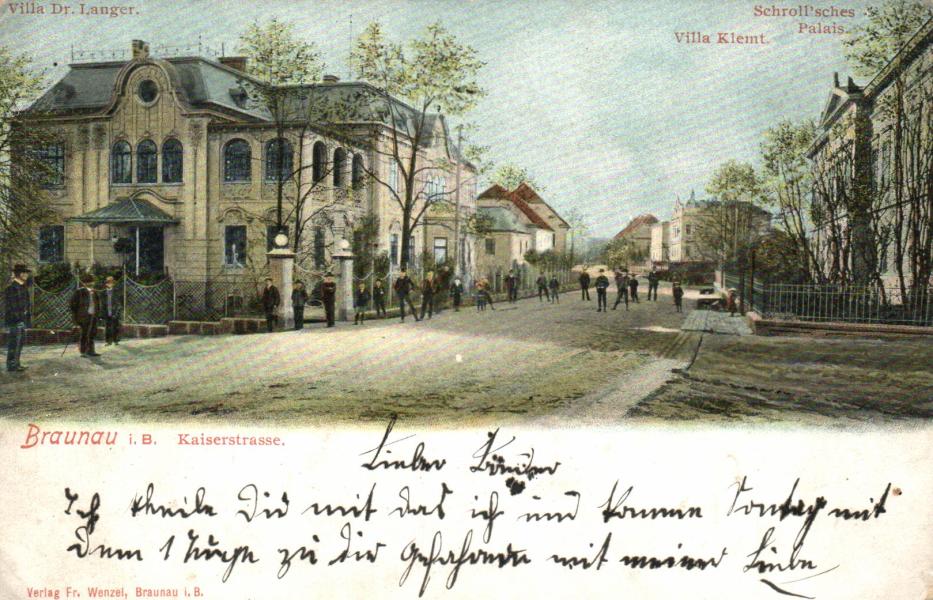 Villa Dr. Langer.
Schroll'sches
Palais.
Villa Klemt.
Braunau i. B. Kaiserstrasse.
Lieber
Ich theile Dir mit das ich und komme Sontag mit
Dem 1 Zuge zu Dir gefahren mit meiner Liebe
Verlag Fr. Wenzel, Braunau i. B.